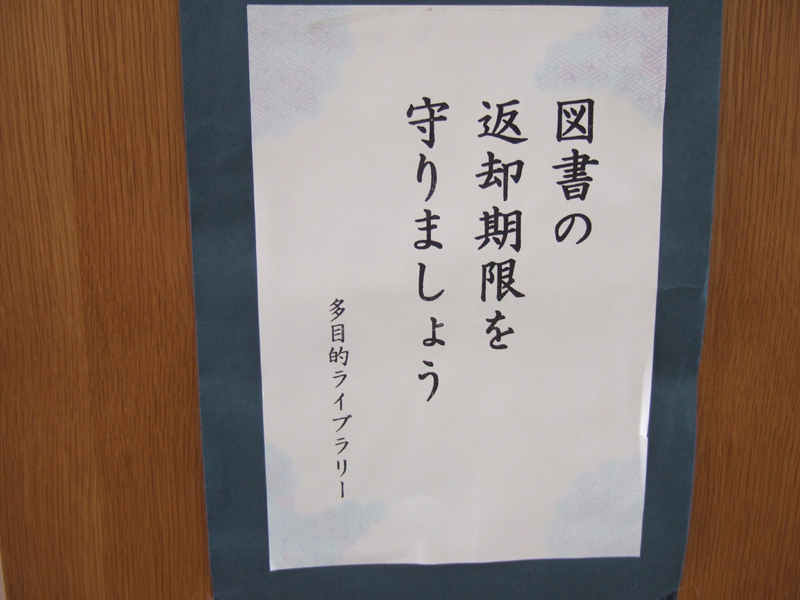 図書の
返却期限を
守りましょう
多目的ライブラリー